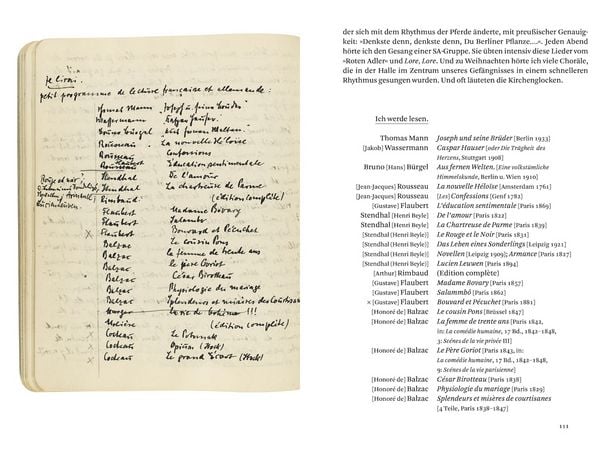 Je lirai.
petit programme de lecture française et allemande :
Thomas Mann Joseph u. seine Brüder
Wassermann Caspar Hauser
Bruno Bürgel Aus fernen Welten.
Rousseau La nouvelle Héloïse
Rousseau Confessions
Flaubert Education sentimentale
Stendhal De l'amour
(Rouge et noir,
Stendhal La chartreuse de Parme
Rimbaud: (édition complète)
Flaubert Madame Bovary
Flaubert Salambo
x Flaubert Bouvard et Pécuchet
Balzac Le cousin Pons
Balzac La femme de trente ans
Balzac Le père Goriot
Balzac César Birotteau
Balzac Physiologie du mariage
Balzac Splendeurs et misères des courtisanes
Murger La vie de bohème !!!
Molière (édition complète)
x Cocteau Le Potomak
Cocteau Opium (Stock)
x Cocteau Le grand écart (Stock)
der sich mit dem Rhythmus der Pferde änderte, mit preußischer Genauig-
keit: »Denkste denn, denkste denn, Du Berliner Pflanze....«. Jeden Abend
hörte ich den Gesang einer SA-Gruppe. Sie übten intensiv diese Lieder vom
»Roten Adler« und Lore, Lore. Und zu Weihnachten hörte ich viele Choräle,
die in der Halle im Zentrum unseres Gefängnisses in einem schnelleren
Rhythmus gesungen wurden. Und oft läuteten die Kirchenglocken.
Ich werde lesen.
Thomas Mann Joseph und seine Brüder [Berlin 1933]
[Jakob] Wassermann Caspar Hauser (oder Die Trägheit des
Herzens, Stuttgart 1908]
Bruno [Hans] Bürgel Aus fernen Welten. [Eine volkstümliche
Himmelskunde, Berlin u. Wien 1910]
[Jean-Jacques] Rousseau La nouvelle Héloïse [Amsterdam 1761]
[Jean-Jacques] Rousseau [Les] Confessions [Genf 1782]
[Gustave] Flaubert L'éducation sentimentale [Paris 1869]
Stendhal [Henri Beyle] De l'amour [Paris 1822]
Stendhal [Henri Beyle] La Chartreuse de Parme [Paris 1839]
[Stendhal (Henri Beyle)] Le Rouge et le Noir [Paris 1831]
[Stendhal (Henri Beyle)] Das Leben eines Sonderlings [Leipzig 1921]
[Stendhal (Henri Beyle)] Novellen [Leipzig 1909]; Armance [Paris 1827]
[Stendhal (Henri Beyle)] Lucien Leuwen [Paris 1894]
[Arthur] Rimbaud (Edition complète)
[Gustave] Flaubert Madame Bovary [Paris 1857]
[Gustave] Flaubert Salammbô [Paris 1862]
× [Gustave] Flaubert Bouvard et Pécuchet [Paris 1881]
[Honoré de] Balzac Le cousin Pons [Brüssel 1847]
[Honoré de] Balzac La femme de trente ans [Paris 1842,
in: La comédie humaine, 17 Bd., 1842–1848,
3: Scénes de la vie privée III]
[Honoré de] Balzac Le Père Goriot [Paris 1843, in:
La comédie humaine, 17 Bd., 1842–1848,
9: Scénes de la vie parisienne]
[Honoré de] Balzac César Birotteau [Paris 1838]
[Honoré de] Balzac Physiologie du mariage [Paris 1829]
[Honoré de] Balzac Splendeurs et misères de courtisanes
[4 Teile, Paris 1838–1847]
111